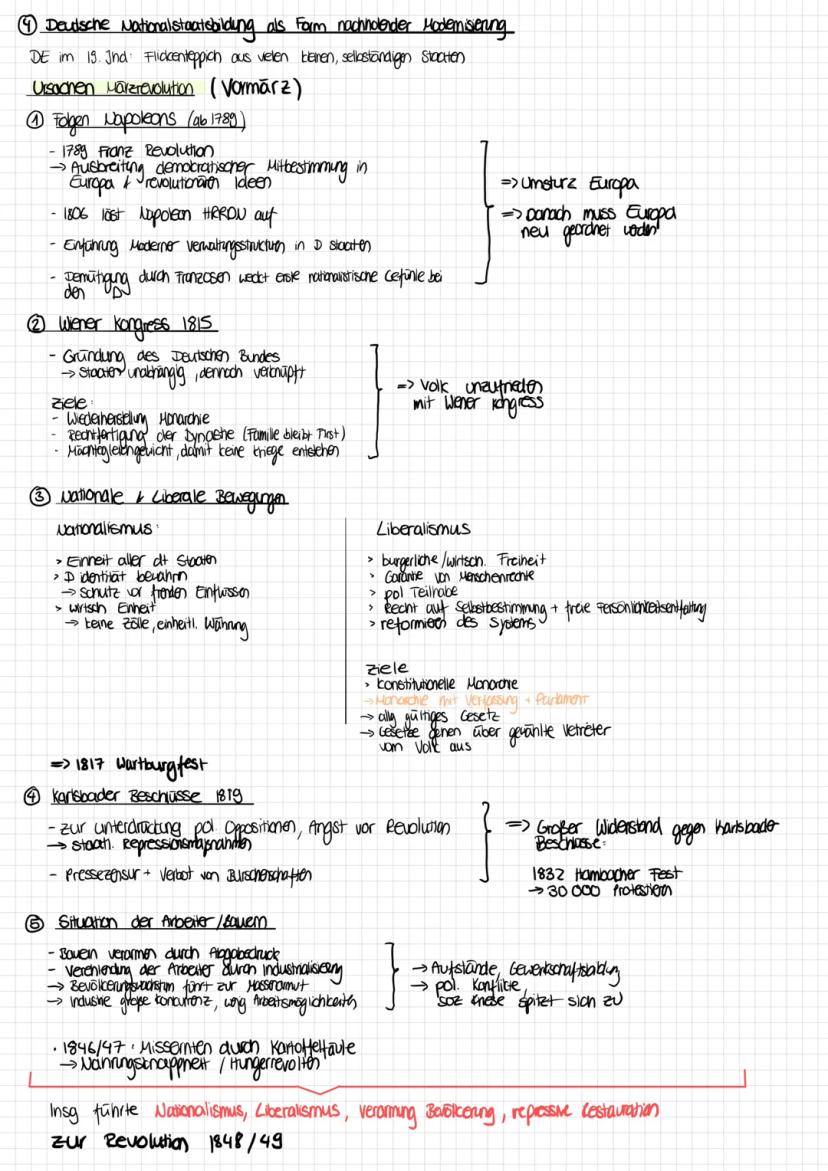 ④ Deutsche Nationalstaatsbildung als Form nachholender Modernisierung
DE im 19. Jhd: Flickenteppich aus vielen kleinen, selbständigen Staaten
Ursachen Märzrevolution (Vormärz)
① Folgen Napoleons (ab 1789)
- 1789 Franz Revolution
→ Ausbreitung demokratischer Mitbestimmung in
Europa & revolutionären Ideen
- 1806 löst Napoleon HRRDN auf
- Einführung Moderner Verwaltungsstrukturen in D Staaten
- Demütigung durch Franzosen weckt erste nationalistische Gefühle bei
den D
=> Umsturz Europa
=> Danach muss Europa
neu geordnet werden
② Wiener Kongress 1815
- Gründung des Deutschen Bundes
→ Staaten unabhängig, dennoch verknüpft
Ziele:
- Wiederherstellung Monarchie
- Rechtfertigung der Dynastie (Familie bleibt Fürst)
- Mächtegleichgewicht, damit keine Kriege entstehen
=> Volk unzufrieden
mit Wiener Kongress
③ Nationale & Liberale Bewegungen
Nationalismus:
> Einheit aller dt Staaten
> D identität bewahren
→ Schutz vor fremden Einflüssen
> wirtsch Einheit
→ keine Zölle, einheitl. Währung
Liberalismus
> bürgerliche/wirtsch. Freiheit
> Garantie von Menschenrechte
> pol Teilhabe
> Recht auf Selbstbestimmung + freie Persönlichkeitsentfaltung
> reformieren des Systems
Ziele
> konstitutionelle Monarchie
→ Monarchie mit Verfassung + Parlament
→ allg gültiges Gesetz
→ Gesetze gehen über gewählte Vetreter
vom Volk aus
=> 1817 Wartburgfest
④ Karlsbader Beschlüsse 1819
- zur unterdrückung pol. Oppositionen, Angst vor Revolution
→ staatl. Repressionsmaßnahmen
- Pressezensur + Verbot von Burschenschaften
=> Großer Widerstand gegen Karlsbader
Beschlüsse:
1832 Hambacher Fest
→ 30 000 Protestiern
⑤ Situation der Arbeiter/Bauern
- Bauern verarmen durch Abgabedruck
- Verehlendung der Arbeiter durch Industrialisierung
→ Bevölkerungswachstum führt zur Massenarmut
→ Industrie große Konkurenz, wenig Arbeitsmöglichkeiten
→ Aufstände, Gewerkschaftsbildung
→ pol. Konflikte,
soz spitzt sich zu
· 1846/47: Missernten durch Kartoffelfäule
→ Nahrungsknappheit / Hungerrevolten
Insg führte Nationalismus, Liberalismus, Verarmung Bevölkerung, repressive Restauration
zur Revolution 1848/49